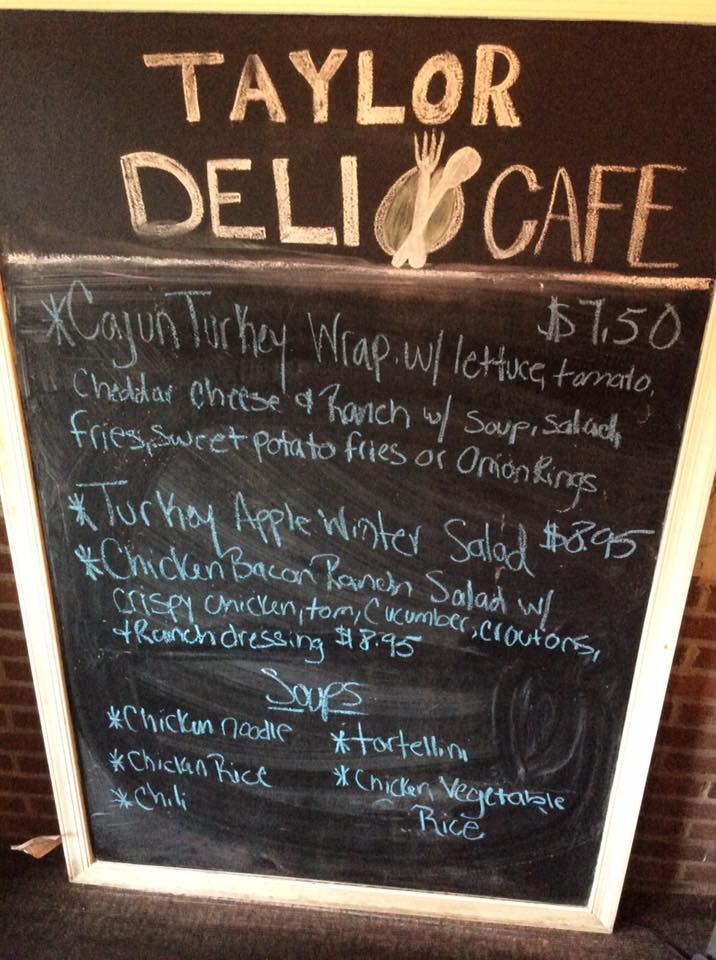 TAYLOR
DELI CAFE
*Cajun Turkey Wrap w/ lettuce, tomato, $7.50
Cheddar cheese & Ranch w/ soup, salad,
fries, sweet potato fries or Onion Rings
*Turkey Apple Winter Salad $8.95
*Chicken Bacon Ranch Salad w/
crispy chicken, tom, Cucumber, croutons,
& Ranch dressing $8.95
Soups
*Chicken noodle *tortellini
*Chicken Rice *Chicken Vegetable
*Chili Rice